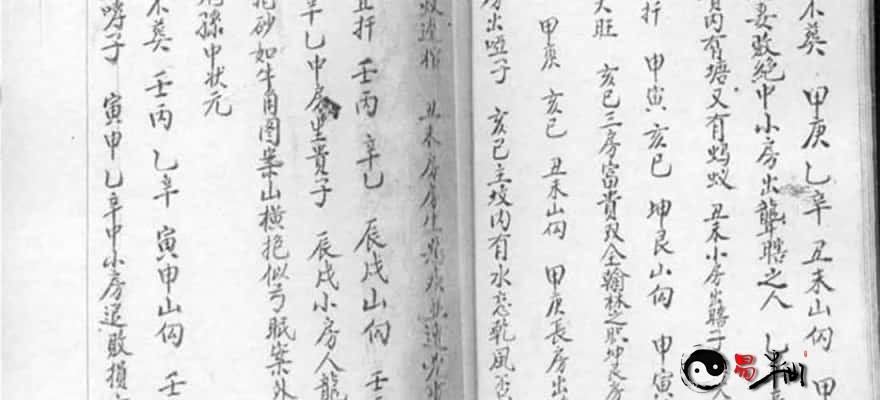 不葬 甲庚乙辛 丑未山向 甲
妻敗絕中小房出聾瞎之人 乙
墳內有塘又有螞蟻 丑未小房出瞎子
扦 甲寅亥巳 坤艮山向 甲寅
大旺 亥巳三房富貴双全翰林之职坤艮房
甲庚 亥巳 丑未山向 甲庚長房出
房出啞子 亥巳主坟內有水忌乾風
丑未房房生
扦 壬丙 辛乙 辰戌山向 壬
辛乙中房坐貴子 辰戌小房人龍
砂如牛角图案山橫抱似弓眠案外
孫中狀元
不葬 壬丙 乙辛 寅申山向 壬
哮子 寅申乙辛中小房退敗損
易半仙